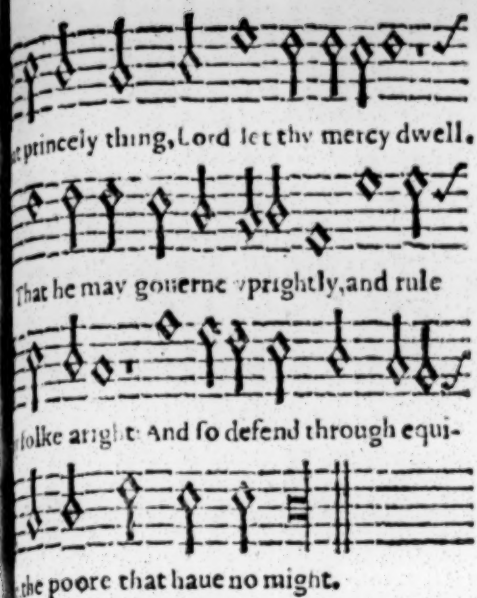 princely thing, Lord let thy mercy dwell.
That he may gouerne vprightly, and rule
folke aright: And ſo defend through equi-
the poore that haue no might.